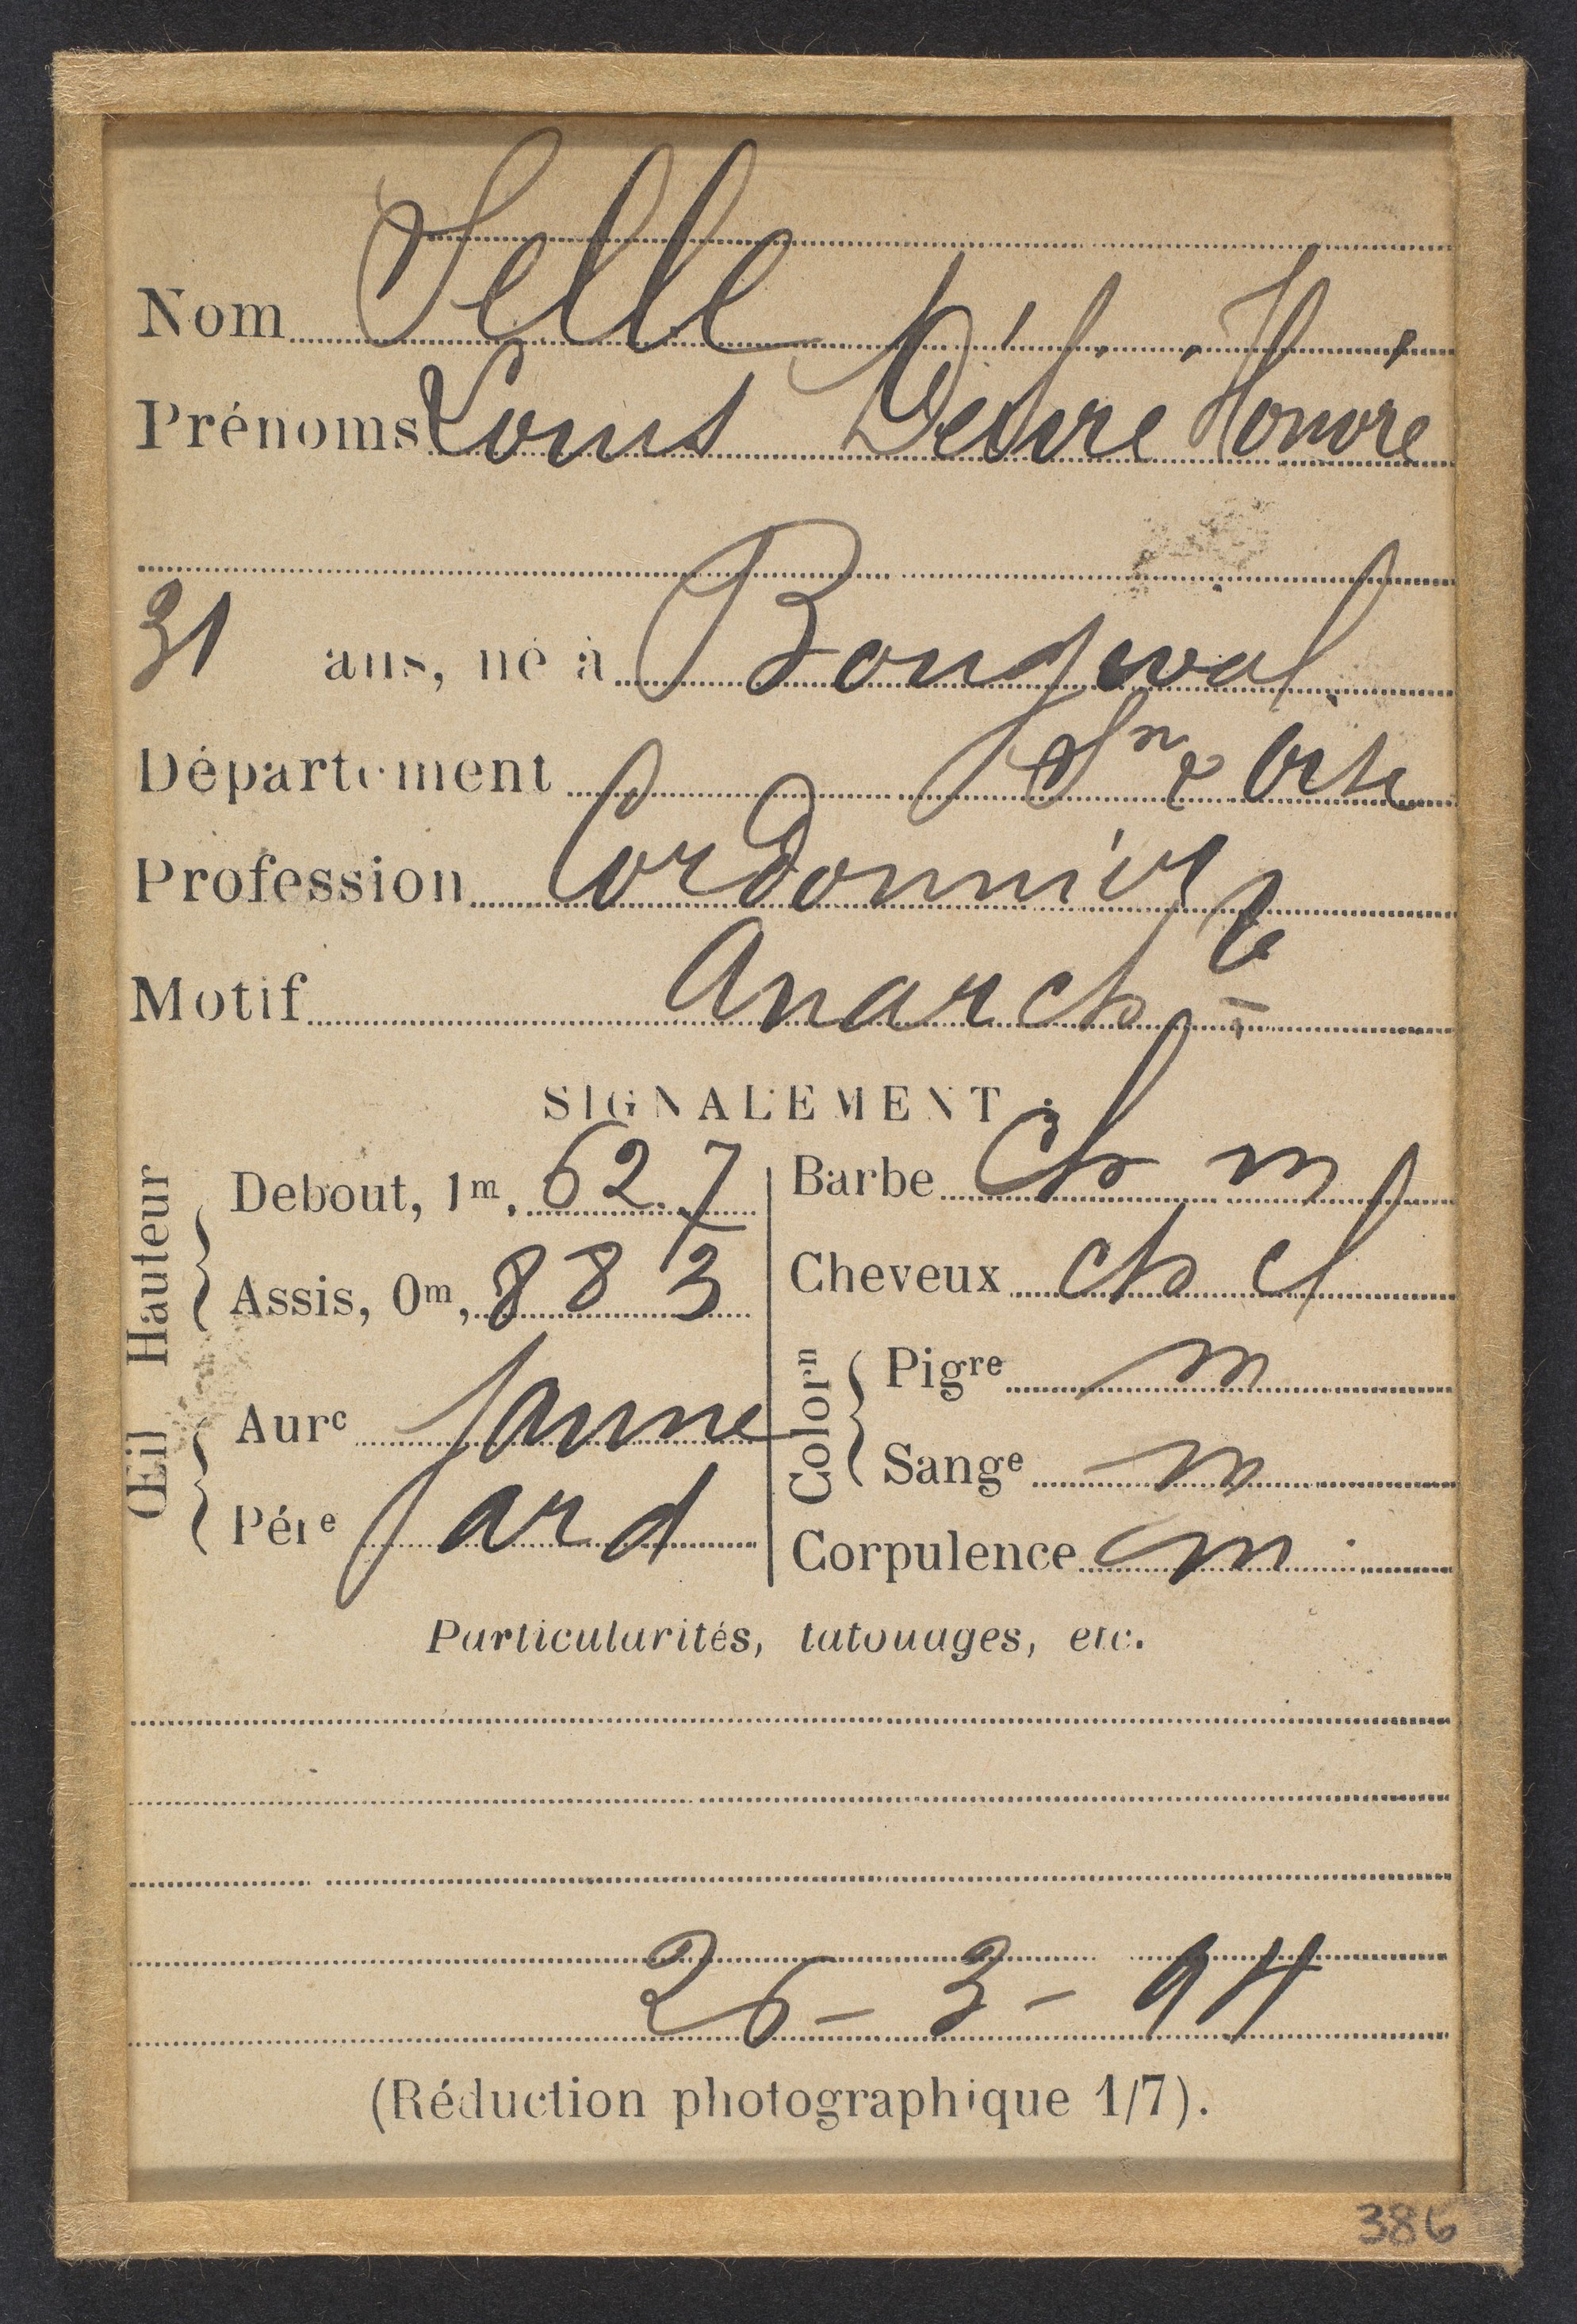 Nom Selle
Prénoms Louis Désiré Honoré
31 ans, né à Bougival
Département Sne & Oise
Profession Cordonnier
Motif Anarchte
SIGNALEMENT
Hauteur
Debout, 1m, 62.7
Assis, 0m, 883
Œil
Aurᵉ Jaune
Périe ard
Barbe ch m
Cheveux ch cl
Colorn
Pigre m
Sange m
Corpulence m
Particularités, tatouages, etc.
26-3-94
(Réduction photographique 1/7).
386